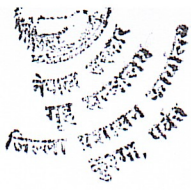 नेपाल सरकार
गृह मन्त्रालय
जिल्ला प्रशासन कार्यालय
पर्वत